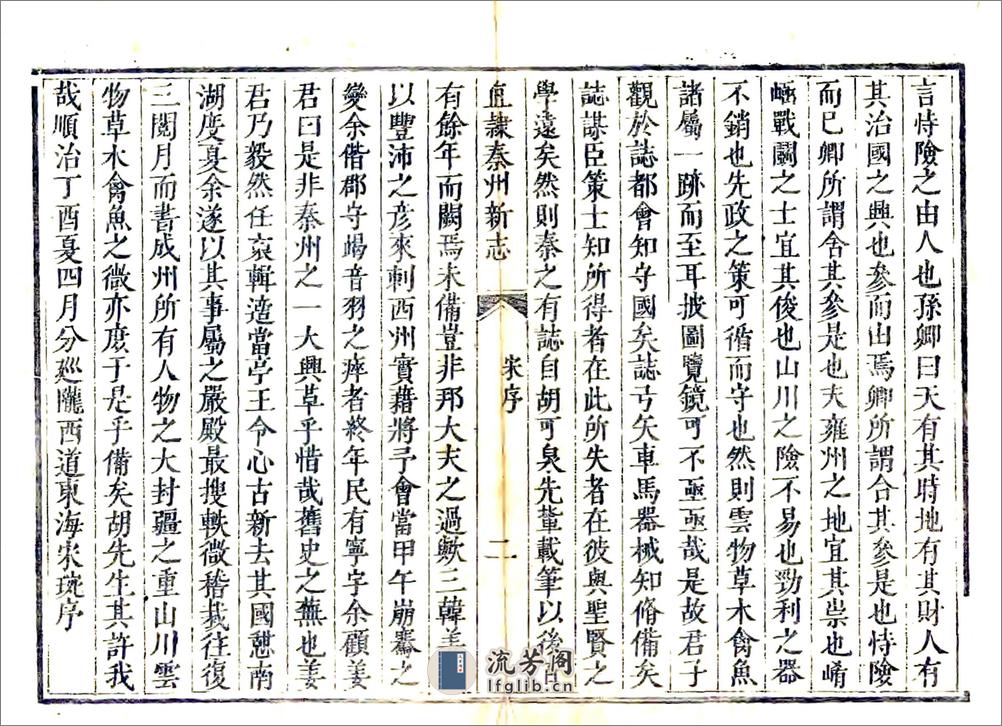 言恃險之由人也孫卿曰天有其時地有其財人有
其治國之興也參而由焉卿所謂合其參是也恃險
而已卿所謂舍其參是也夫雍州之地宜其崇也崤
凾戰鬪之士宜其俊也山川之險不易也勁利之器
不銷也先政之策可循而守也然則雲物草木禽魚
諸屬一跡而至耳披圖覽鏡可不亟亟哉是故君子
觀於誌都會知守國矣誌弓矢車馬器械知脩備矣
誌謀臣策士知所得者在此所失者在彼與聖賢之
學遠矣然則秦之有誌自胡可泉先輩載筆以後百
直隸秦州新志
宋序
二
有餘年而闕焉未備豈非邦大夫之過歟三韓姜君
以豐沛之彦來刺西州實藉將予會當甲午崩騫之
變余偕郡守竭音羽之瘁者終年民有寧宇余顧姜
君曰是非秦州之一大興革乎惜哉舊史之蕪也姜
君乃毅然任裒輯適當亭王令心古新去其國憇南
湖度夏余遂以其事屬之嚴殿最搜軼微稽栽往復
三閱月而書成州所有人物之大封疆之重山川雲
物草木禽魚之微亦庶于是乎備矣胡先生其許我
哉順治丁酉夏四月分廵隴西道東海宋琬序
流芳阁
lfglib.cn